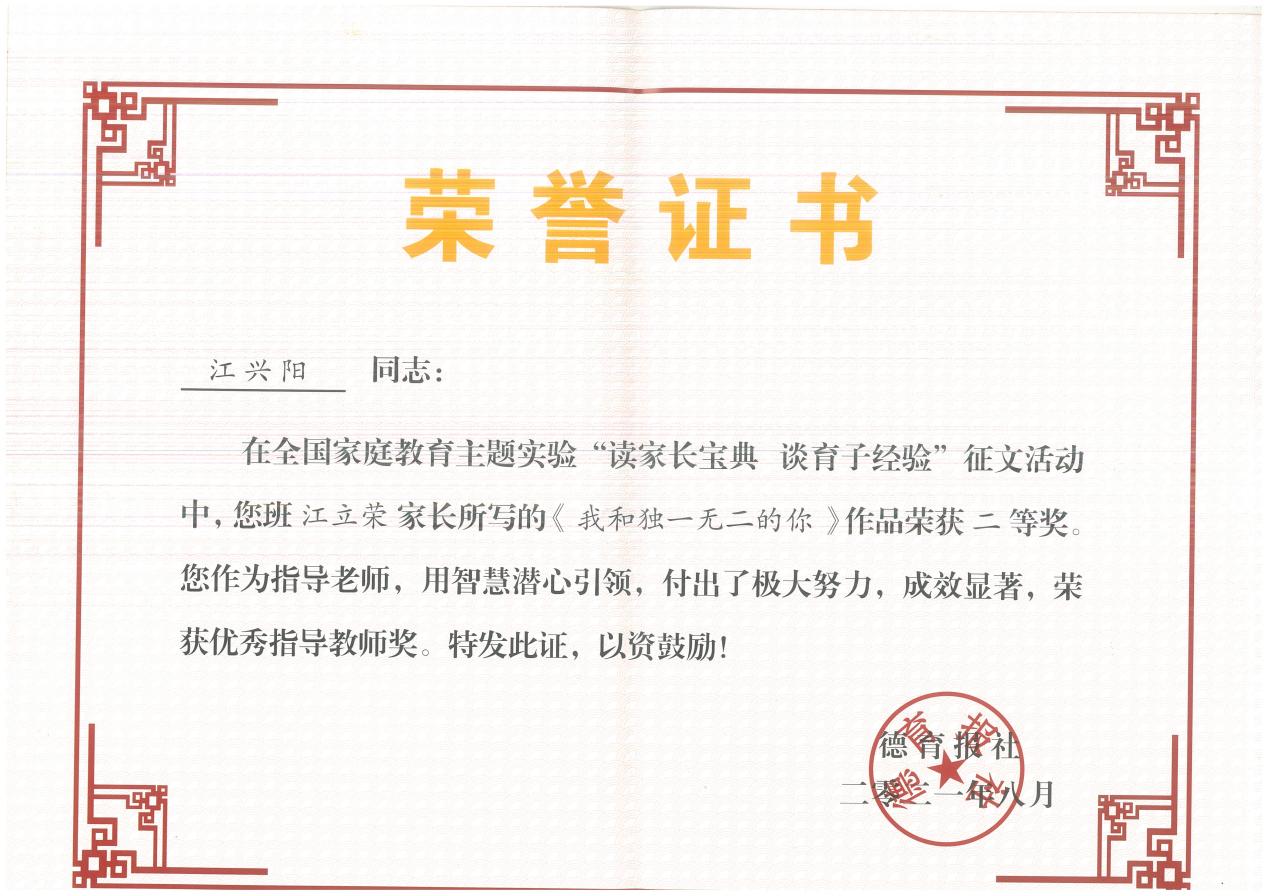 荣誉证书
江兴阳 同志：
在全国家庭教育主题实验“读家长宝典 谈育子经验”征文活动
中，您班 江立荣 家长所写的《 我和独一无二的你 》作品荣获 二 等奖。
您作为指导老师，用智慧潜心引领，付出了极大努力，成效显著，荣
获优秀指导教师奖。特发此证，以资鼓励！
德育报社
德育报社
二零二一年八月